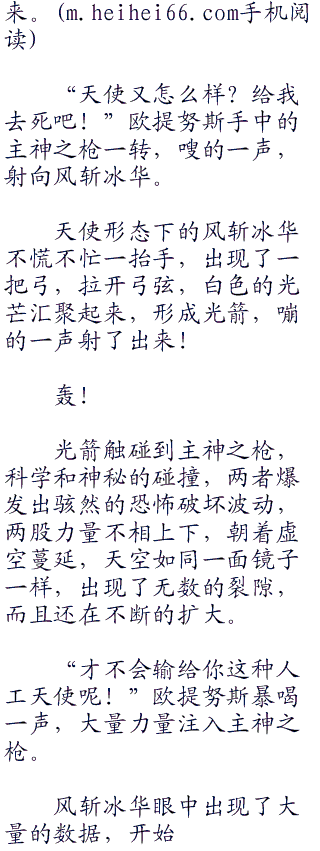 来。(m.heihei66.com手机阅
读)
“天使又怎么样？给我
去死吧！”欧提努斯手中的
主神之枪一转，嗖的一声，
射向风斩冰华。
天使形态下的风斩冰华
不慌不忙一抬手，出现了一
把弓，拉开弓弦，白色的光
芒汇聚起来，形成光箭，嘣
的一声射了出来！
轰！
光箭触碰到主神之枪，
科学和神秘的碰撞，两者爆
发出骇然的恐怖破坏波动，
两股力量不相上下，朝着虚
空蔓延，天空如同一面镜子
一样，出现了无数的裂隙，
而且还在不断的扩大。
“才不会输给你这种人
工天使呢！”欧提努斯暴喝
一声，大量力量注入主神之
枪。
风斩冰华眼中出现了大
量的数据，开始